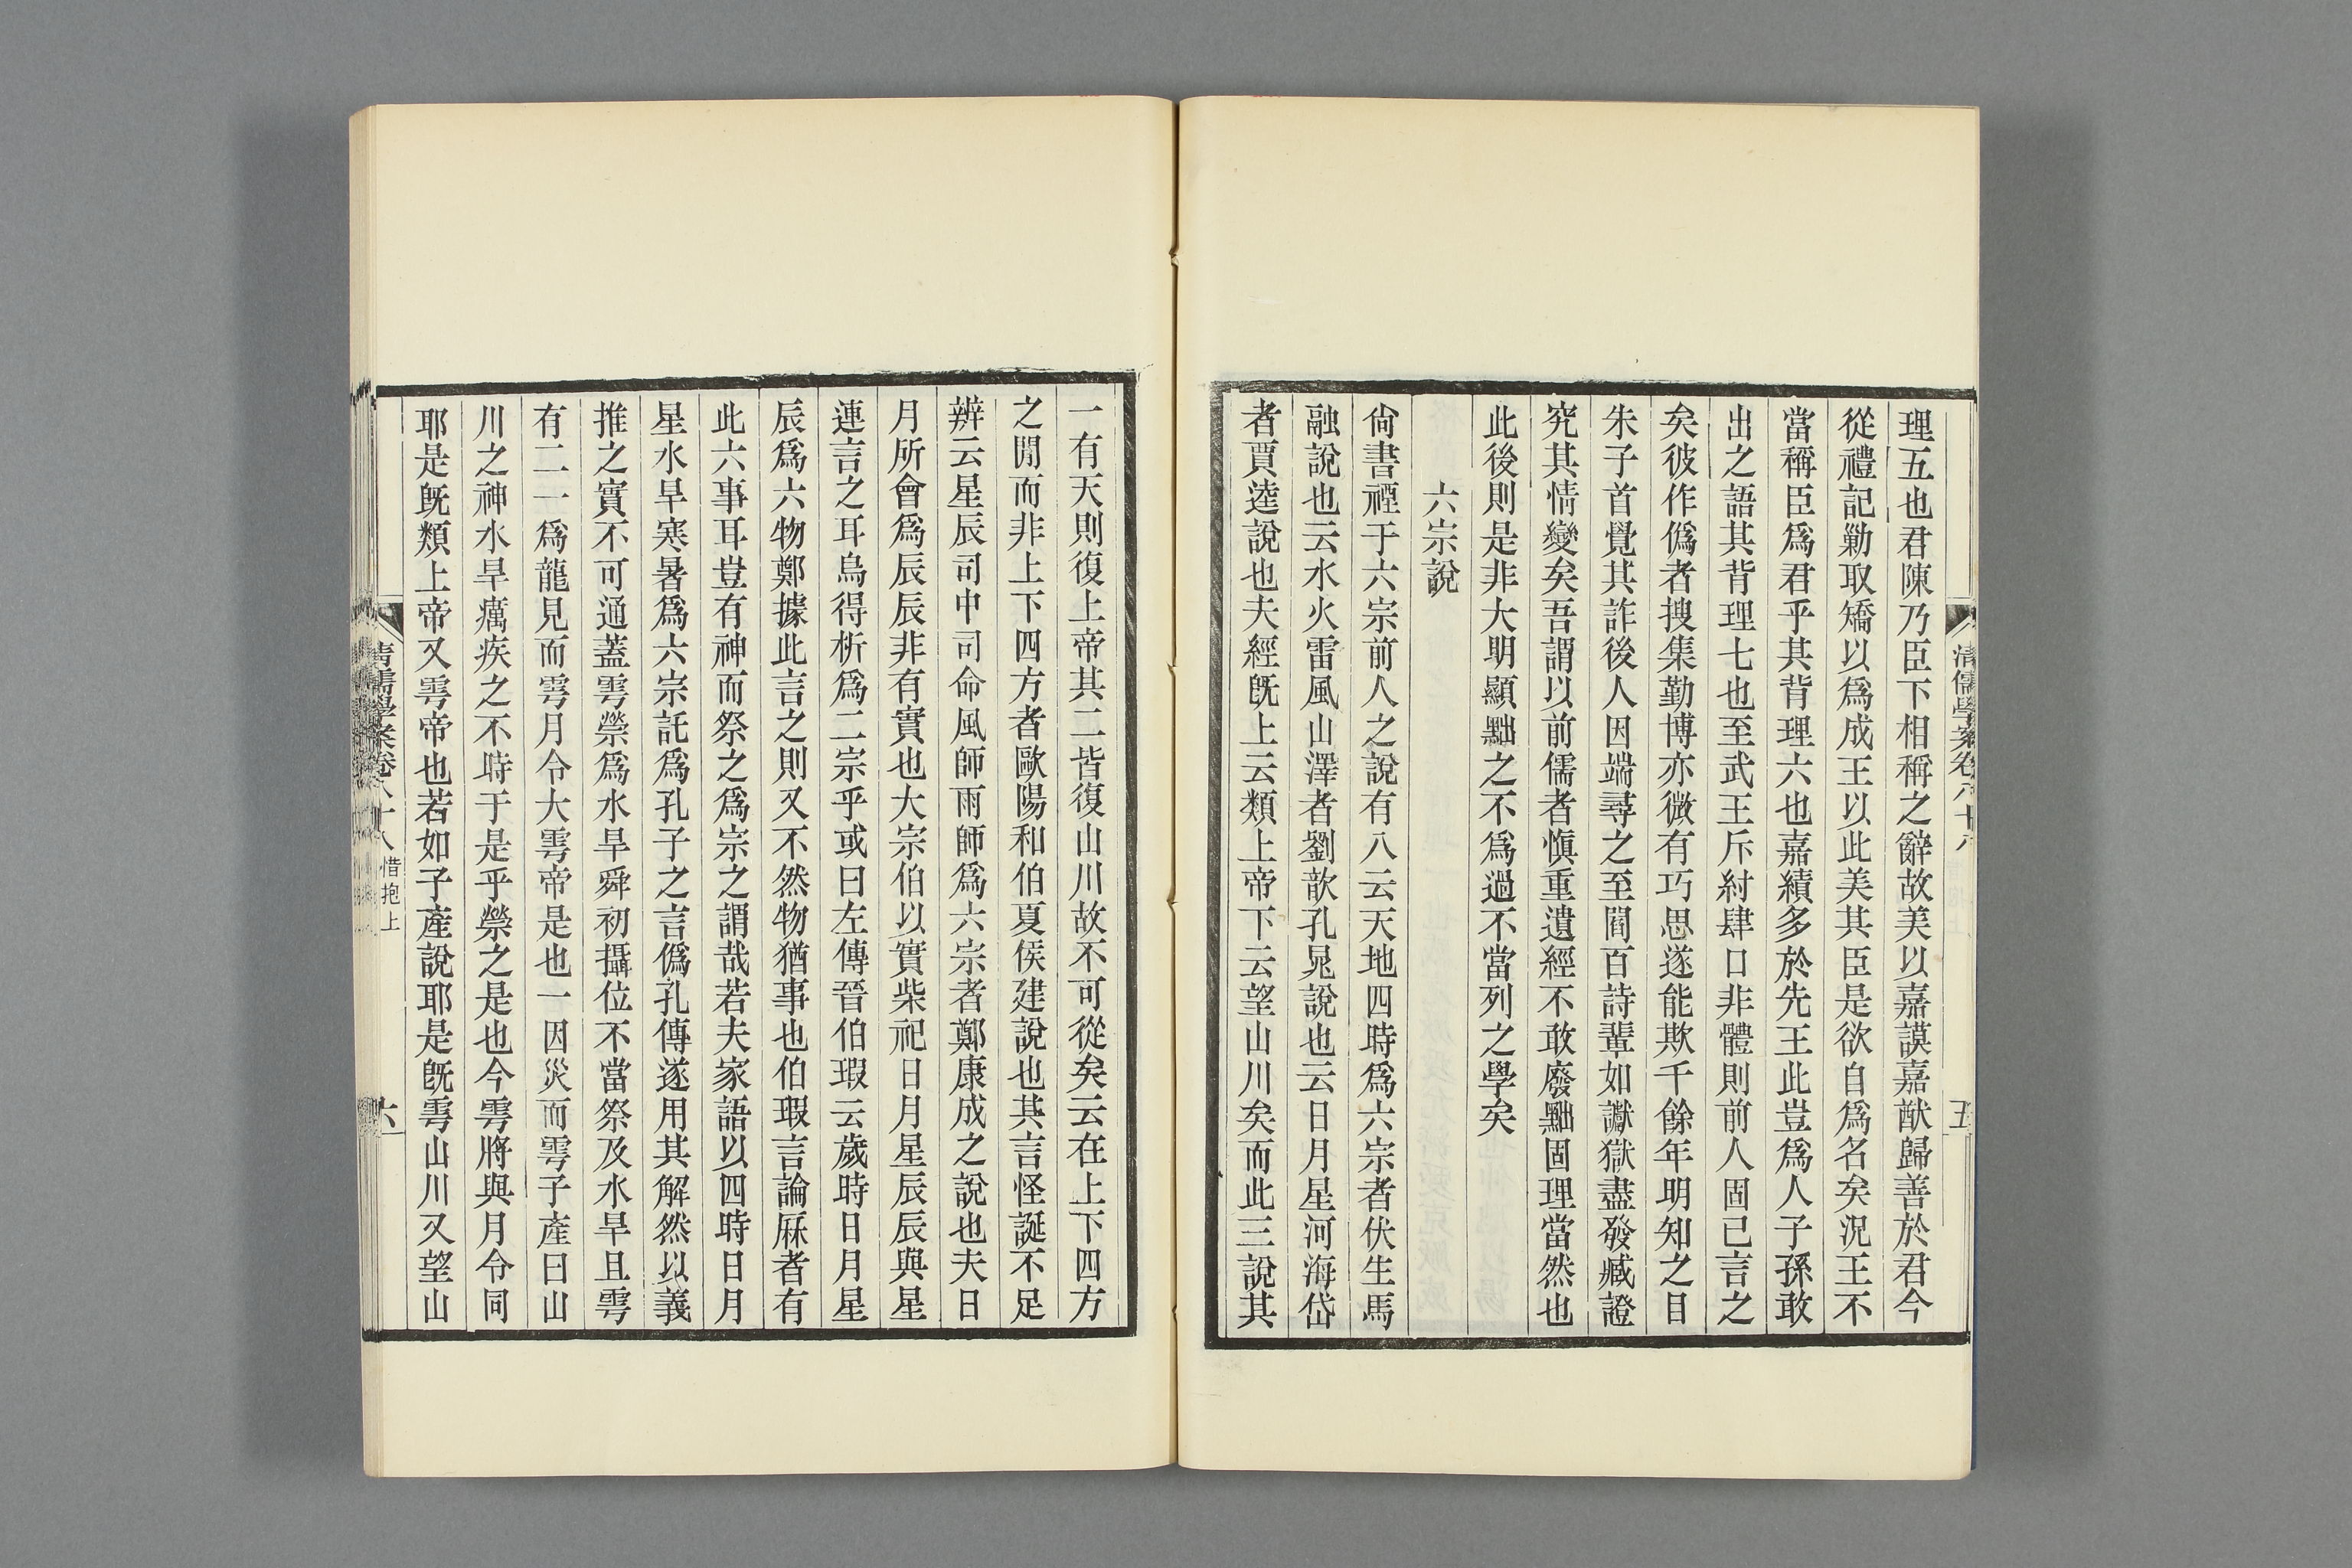 理五也君陳乃臣下相稱之辭故美以嘉謨嘉猷歸善於君今
從禮記勦取矯以爲成王以此美其臣是欲自爲名矣況王不
當稱臣爲君乎其背理六也嘉績多於先王此豈爲人子孫敢
出之語其背理七也至武王斥紂肆口非體則前人固已言之
矣彼作僞者搜集勤博亦微有巧思遂能欺千餘年明知之目
朱子首覺其詐後人因端尋之至閻百詩輩如讞獄盡發臧證
究其情變矣吾謂以前儒者愼重遺經不敢廢黜固理當然也
此後則是非大明顯黜之不爲過不當列之學矣
六宗說
尙書禋于六宗前人之說有八云天地四時爲六宗者伏生馬
融說也云水火雷風山澤者劉歆孔晁說也云日月星河海岱
者賈逵說也夫經旣上云類上帝下云望山川矣而此三說其
清儒學案卷八十八
五
一有天則復上帝其二皆復山川故不可從矣云在上下四方
之閒而非上下四方者歐陽和伯夏侯建說也其言怪誕不足
辨云星辰司中司命風師雨師爲六宗者鄭康成之說也夫日
月所會爲辰辰非有實也大宗伯以實柴祀日月星辰辰與星
連言之耳烏得析爲二宗乎或曰左傳晉伯瑕云歲時日月星
辰爲六物鄭據此言之則又不然物猶事也伯瑕言論厤者有
此六事耳豈有神而祭之爲宗之謂哉若夫家語以四時日月
星水旱寒暑爲六宗託爲孔子之言僞孔傳遂用其解然以義
推之實不可通蓋雩禜爲水旱舜初攝位不當祭及水旱且雩
有二一爲龍見而雩月令大雩帝是也一因災而雩子產曰山
川之神水旱癘疾之不時于是乎禜之是也今雩將與月令同
耶是旣類上帝又雩帝也若如子產說耶是旣雩山川又望山
清儒學案卷八十八
惜抱上
六